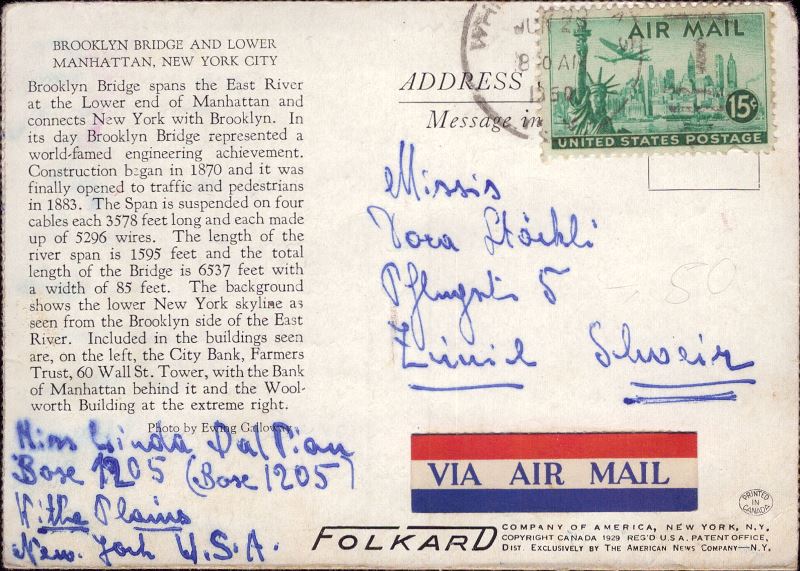 BROOKLYN BRIDGE AND LOWER
MANHATTAN, NEW YORK CITY
Brooklyn Bridge spans the East River
at the Lower end of Manhattan and
connects New York with Brooklyn. In
its day Brooklyn Bridge represented a
world-famed engineering achievement.
Construction began in 1870 and it was
finally opened to traffic and pedestrians
in 1883. The Span is suspended on four
cables each 3578 feet long and each made
up of 5296 wires. The length of the
river span is 1595 feet and the total
length of the Bridge is 6537 feet with
a width of 85 feet. The background
shows the lower New York skyline as
seen from the Brooklyn side of the East
River. Included in the buildings seen
are, on the left, the City Bank, Farmers
Trust, 60 Wall St. Tower, with the Bank
of Manhattan behind it and the Wool-
worth Building at the extreme right.
Photo by Ewing Galloway
Miss Linda Dal Pian
Box 1205 (Box 1205)
Withe Plains
New York U.S.A.
ADDRESS
Message in
JUN 29
8 30 AM
AIR MAIL
15¢
UNITED STATES POSTAGE
Missis
Dora Stöckli
5
Zürich Schweiz
50
VIA AIR MAIL
PRINTED
IN
CANADA
FOLKARD
COMPANY OF AMERICA, NEW YORK, N.Y.
COPYRIGHT CANADA 1929 REG'D U.S.A. PATENT OFFICE,
DIST. EXCLUSIVELY BY THE AMERICAN NEWS COMPANY—N.Y.